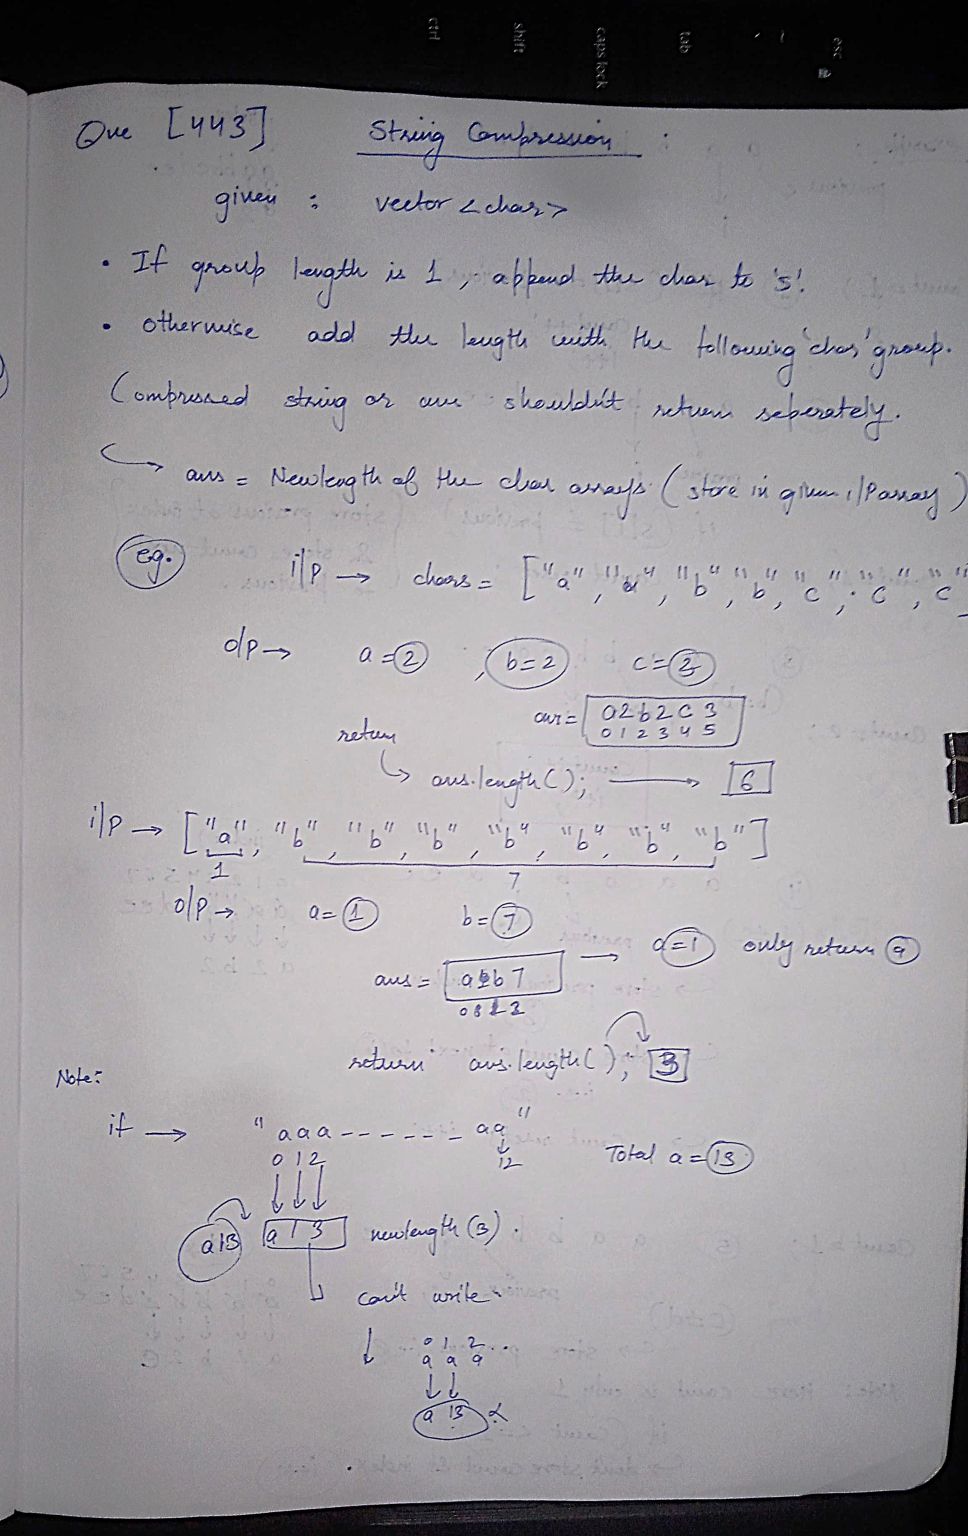 esc
~ `
tab
caps lock
shift
ctrl
Que [443] String Compression :
given : vector <char>
• If group length is 1, append the char to 's'.
• otherwise add the length with the following 'char' group.
Compressed string or ans shouldn't return seperately.
ans = Newlength of the char arrays (store in given i/P array)
eg. i/P → chars = ["a", "a", "b", "b", "c", "c", "c"
o/p → a = 2, b = 2 c = 3
ans = a2b2c3
0 1 2 3 4 5
return
ans.length(); → 6
i/p → ["a", "b", "b", "b", "b", "b", "b", "b"]
1 7
o/p → a = 1 b = 7
→ a = 1 only return a
ans = a b 7
0 1 2
return ans.length(); 3
Note:
if → "aaa ------ aa"
0 1 2 12 Total a = 13
a13 a 1 3 newlength (3).
can't write
0 1 2 ..
a a a
a 13 x